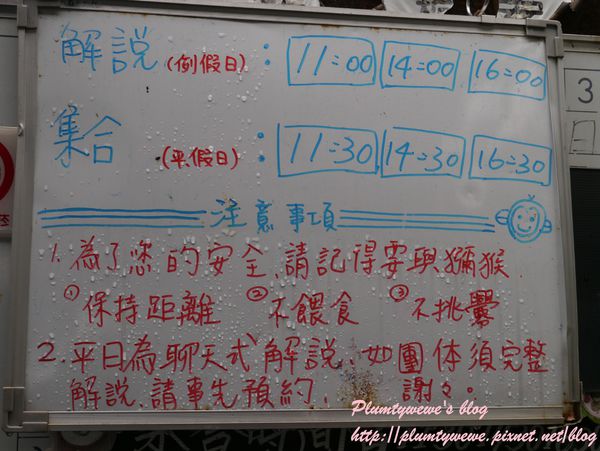 解說(例假日): 11:00 14:00 16:00
集合(平.假日): 11:30 14:30 16:30
注意事項
1.為了您的安全,請記得要與獼猴.
①保持距離 ②不餵食 ③不挑釁
2.平日為聊天式解說、如團体須完整
解說、請事先預約. 謝々。
Plumtywewe's blog
http://plumtywewe.pixnet.net/blog
3
日